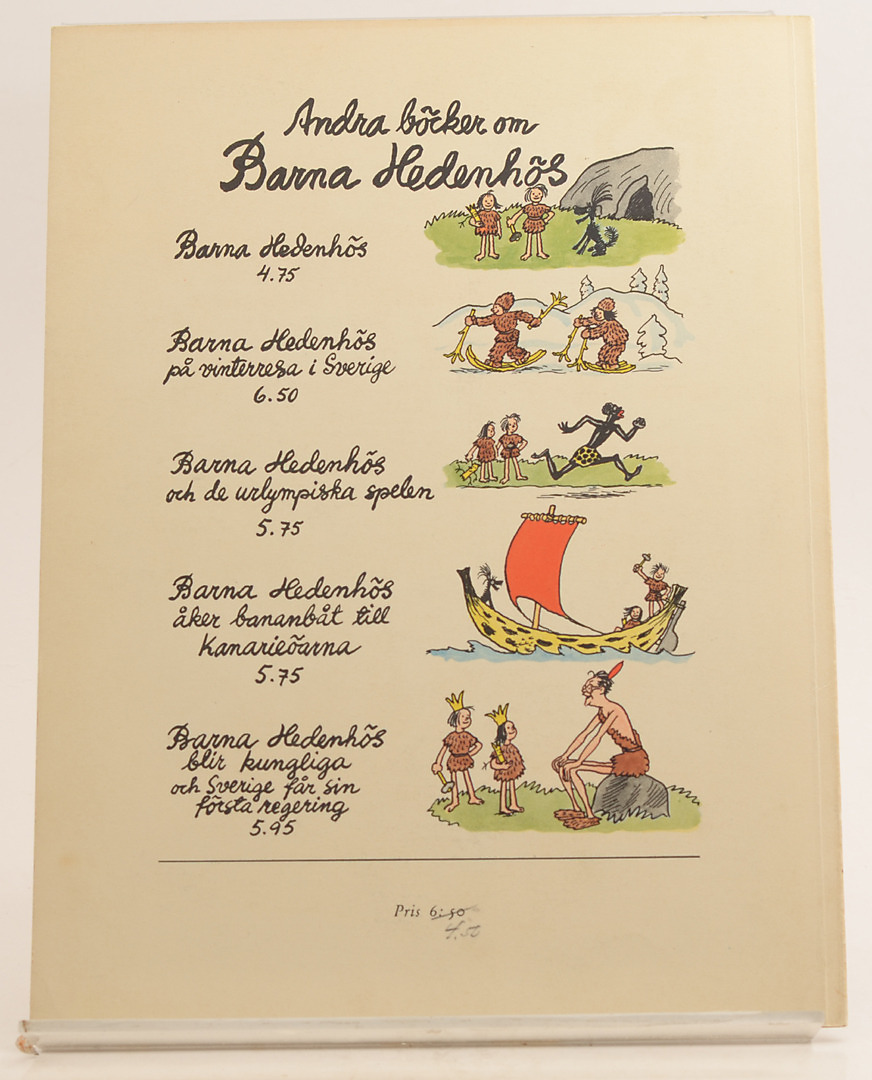 Andra böcker om
Barna Hedenhös
Barna Hedenhös
4.75
Barna Hedenhös
på vinterresa i Sverige
6.50
Barna Hedenhös
och de urlympiska spelen
5.75
Barna Hedenhös
åker bananbåt till
Kanarieöarna
5.75
Barna Hedenhös
blir kungliga
och Sverige får sin
första regering
5.95
Pris 6:50
4,50